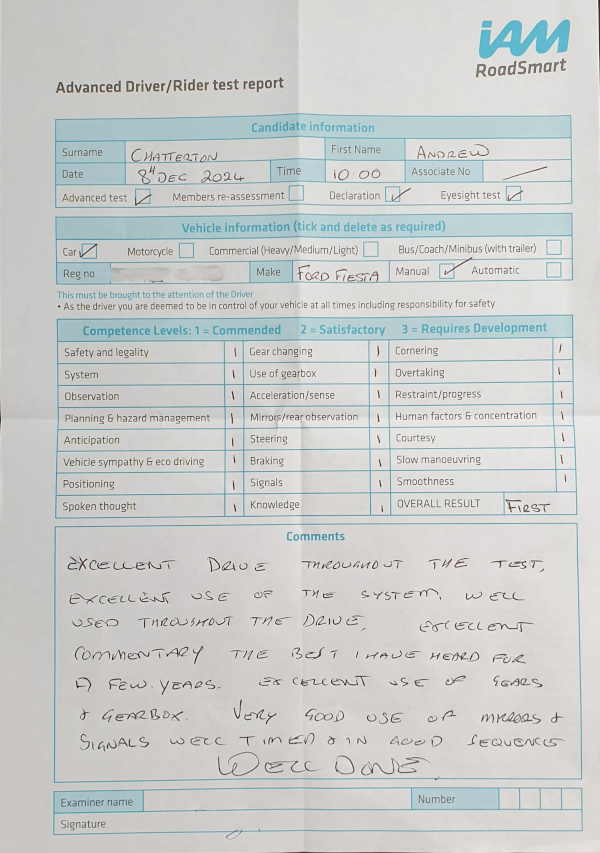 iAM
RoadSmart
Advanced Driver/Rider test report
Candidate information
Surname CHATTERTON First Name ANDREW
Date 8th DEC 2024 Time 10:00 Associate No
Advanced test Members re-assessment Declaration Eyesight test
Vehicle information (tick and delete as required)
Car Motorcycle Commercial (Heavy/Medium/Light) Bus/Coach/Minibus (with trailer)
Reg no Make FORD FIESTA Manual Automatic
This must be brought to the attention of the Driver
• As the driver you are deemed to be in control of your vehicle at all times including responsibility for safety
Competence Levels: 1 = Commended 2 = Satisfactory 3 = Requires Development
Safety and legality 1 Gear changing 1 Cornering 1
System 1 Use of gearbox 1 Overtaking 1
Observation 1 Acceleration/sense 1 Restraint/progress 1
Planning & hazard management 1 Mirrors/rear observation 1 Human factors & concentration 1
Anticipation 1 Steering 1 Courtesy 1
Vehicle sympathy & eco driving 1 Braking 1 Slow manoeuvring 1
Positioning 1 Signals 1 Smoothness 1
Spoken thought 1 Knowledge 1 OVERALL RESULT FIRST
Comments
EXCELLENT DRIVE THROUGHOUT THE TEST,
EXCELLENT USE OF THE SYSTEM, WELL
USED THROUGHOUT THE DRIVE, EXCELLENT
COMMENTARY THE BEST I HAVE HEARD FOR
A FEW YEARS. EXCELLENT USE OF GEARS
& GEARBOX. VERY GOOD USE OF MIRRORS &
SIGNALS WELL TIMED & IN GOOD SEQUENCE
WELL DONE
Examiner name Number
Signature